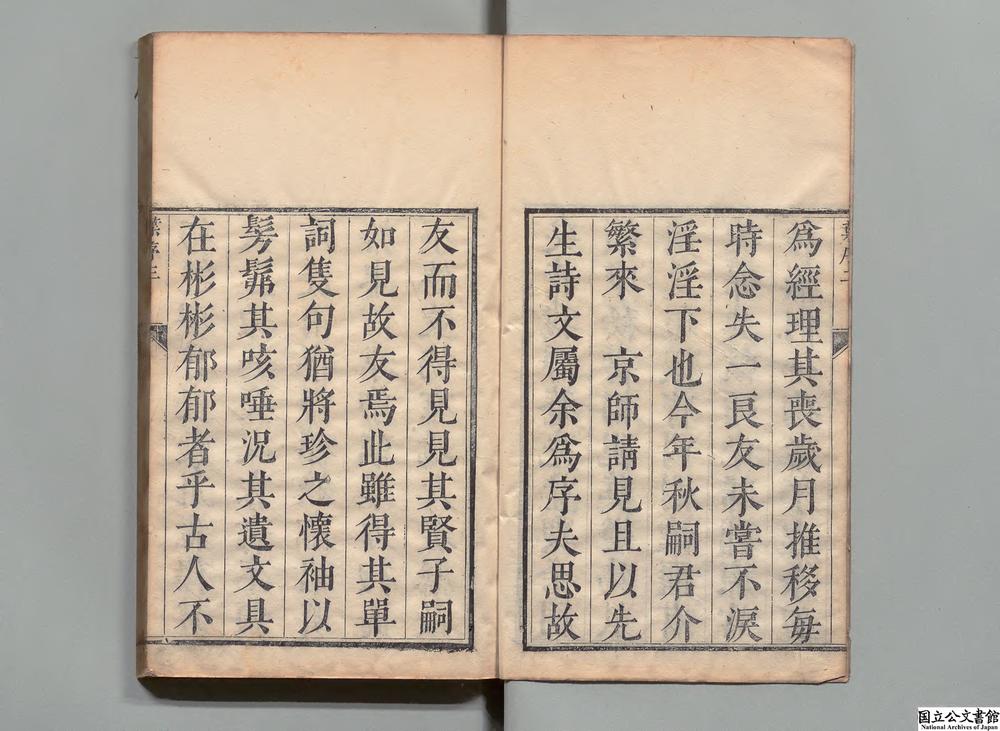 爲經理其喪歲月推移每
時念失一良友未嘗不淚
淫淫下也今年秋嗣君介
繁來 京師請見且以先
生詩文屬余爲序夫思故
友而不得見見其賢子嗣
如見故友焉此雖得其單
詞隻句猶將珍之懷袖以
髣髴其咳唾况其遺文具
在彬彬郁郁者乎古人不
葉序三
国立公文書館
National Archives of Japan